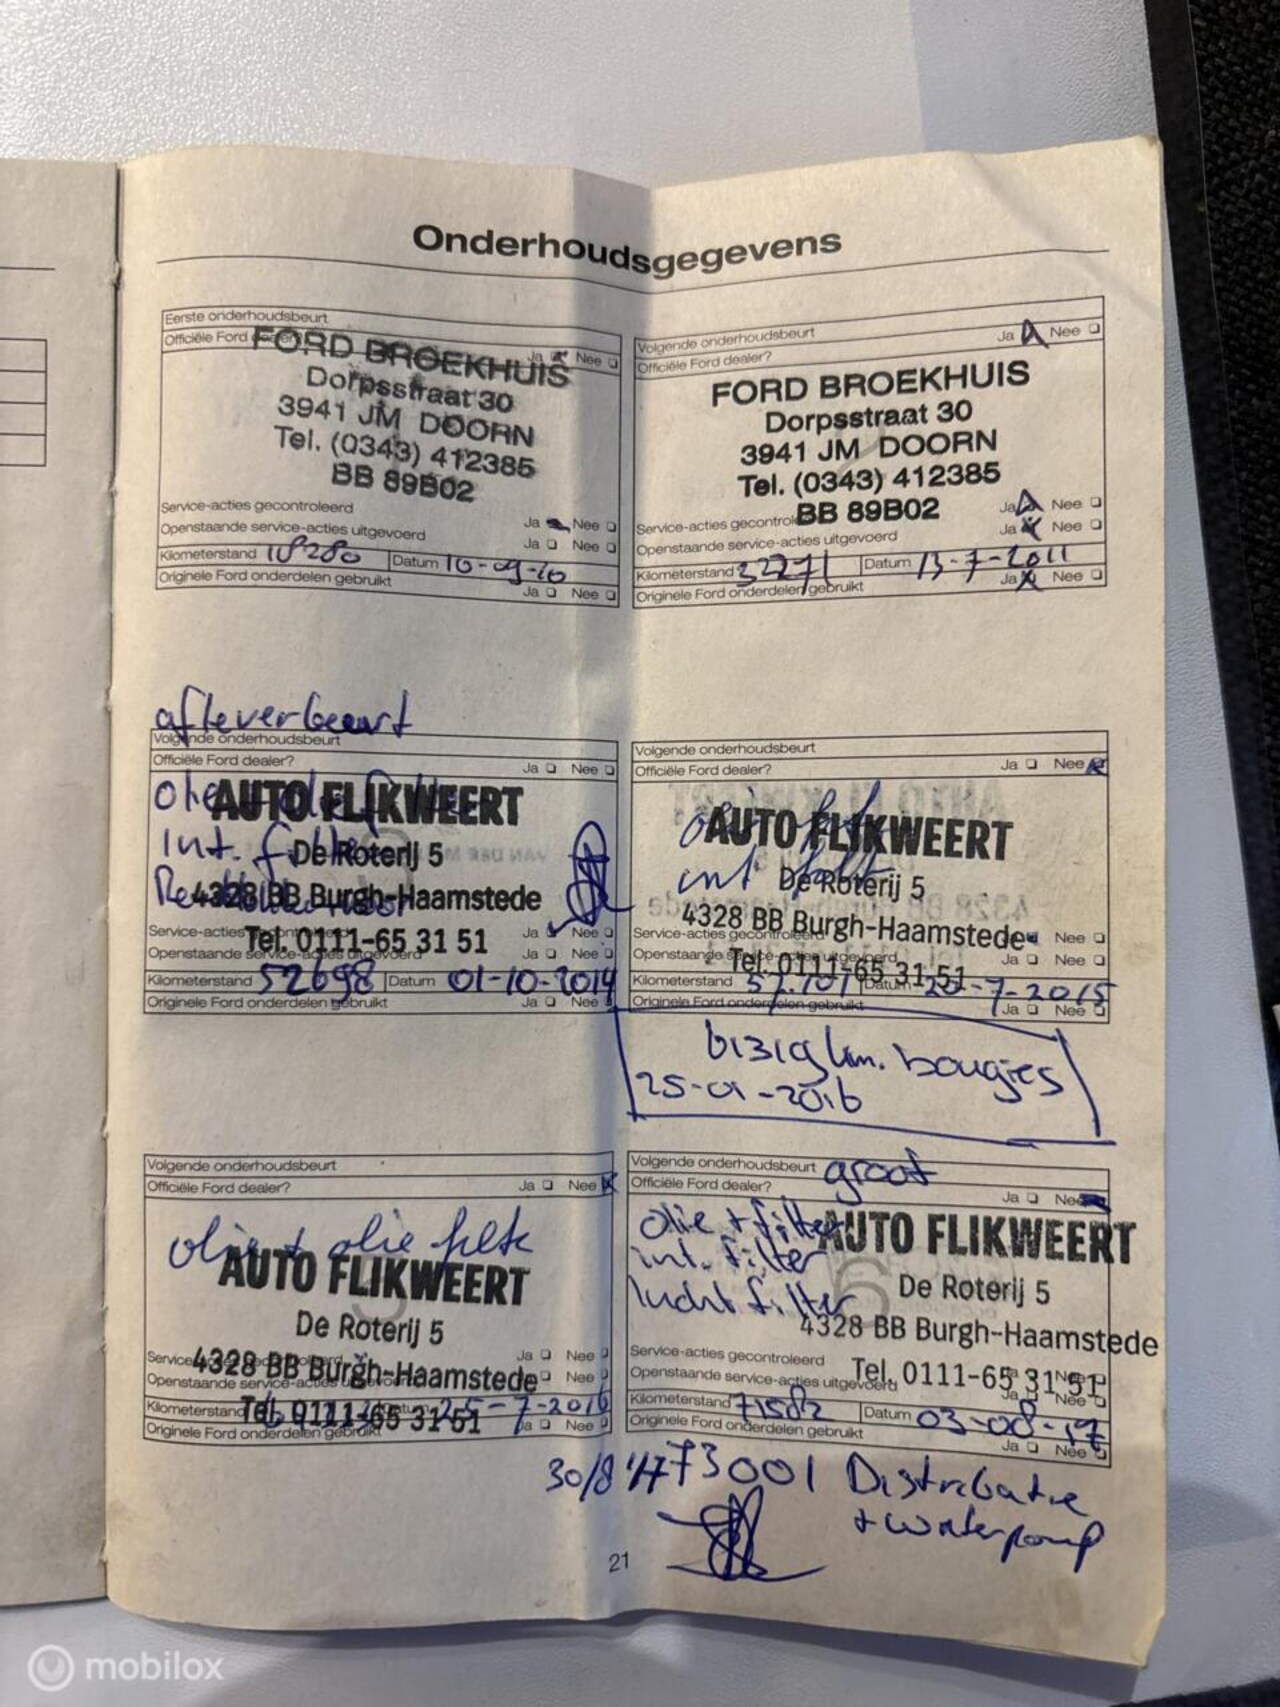 Onderhoudsgegevens
Eerste onderhoudsbeurt
Officiële Ford dealer? Ja Nee
FORD BROEKHUIS
Dorpsstraat 30
3941 JM DOORN
Tel. (0343) 412385
BB 89B02
Service-acties gecontroleerd Ja Nee
Openstaande service-acties uitgevoerd Ja Nee
Kilometerstand 18280 Datum 10-09-10
Originele Ford onderdelen gebruikt Ja Nee
Volgende onderhoudsbeurt Ja Nee
Officiële Ford dealer?
FORD BROEKHUIS
Dorpsstraat 30
3941 JM DOORN
Tel. (0343) 412385
BB 89B02
Service-acties gecontroleerd Ja Nee
Openstaande service-acties uitgevoerd Ja Nee
Kilometerstand 32271 Datum 13-7-2011
Originele Ford onderdelen gebruikt Ja Nee
afleverbeurt
Volgende onderhoudsbeurt
Officiële Ford dealer? Ja Nee
olie
AUTO FLIKWEERT
int. filter
De Roterij 5
4328 BB Burgh-Haamstede
Service-acties Ja Nee
Tel. 0111-65 31 51
Openstaande service-acties uitgevoerd Ja Nee
Kilometerstand 52698 Datum 01-10-2014
Originele Ford onderdelen gebruikt Ja Nee
Volgende onderhoudsbeurt
Officiële Ford dealer? Ja Nee
AUTO FLIKWEERT
int
De Roterij 5
4328 BB Burgh-Haamstede
Service-acties gecontroleerd Nee
Openstaande service-acties uitgevoerd Ja Nee
Tel. 0111-65 31 51
Kilometerstand Datum 20-7-2015
Originele Ford onderdelen gebruikt Ja Nee
61319 km. bougies
25-01-2016
Volgende onderhoudsbeurt
Officiële Ford dealer? Ja Nee
olie + olie filter
AUTO FLIKWEERT
De Roterij 5
4328 BB Burgh-Haamstede
Service Ja Nee
Openstaande service-acties uitgevoerd Nee
Tel. 0111-65 31 51
Kilometerstand Datum 25-7-2016
Originele Ford onderdelen gebruikt Ja Nee
Volgende onderhoudsbeurt groot
Officiële Ford dealer? Ja Nee
olie + filter
AUTO FLIKWEERT
int. filter
lucht filter
De Roterij 5
4328 BB Burgh-Haamstede
Service-acties gecontroleerd
Tel. 0111-65 31 51
Openstaande service-acties uitgevoerd Ja Nee
Kilometerstand 71582 Datum 03-08-17
Originele Ford onderdelen gebruikt Ja Nee
30/8 '17 73001 Distributie
+ waterpomp
21
mobilox